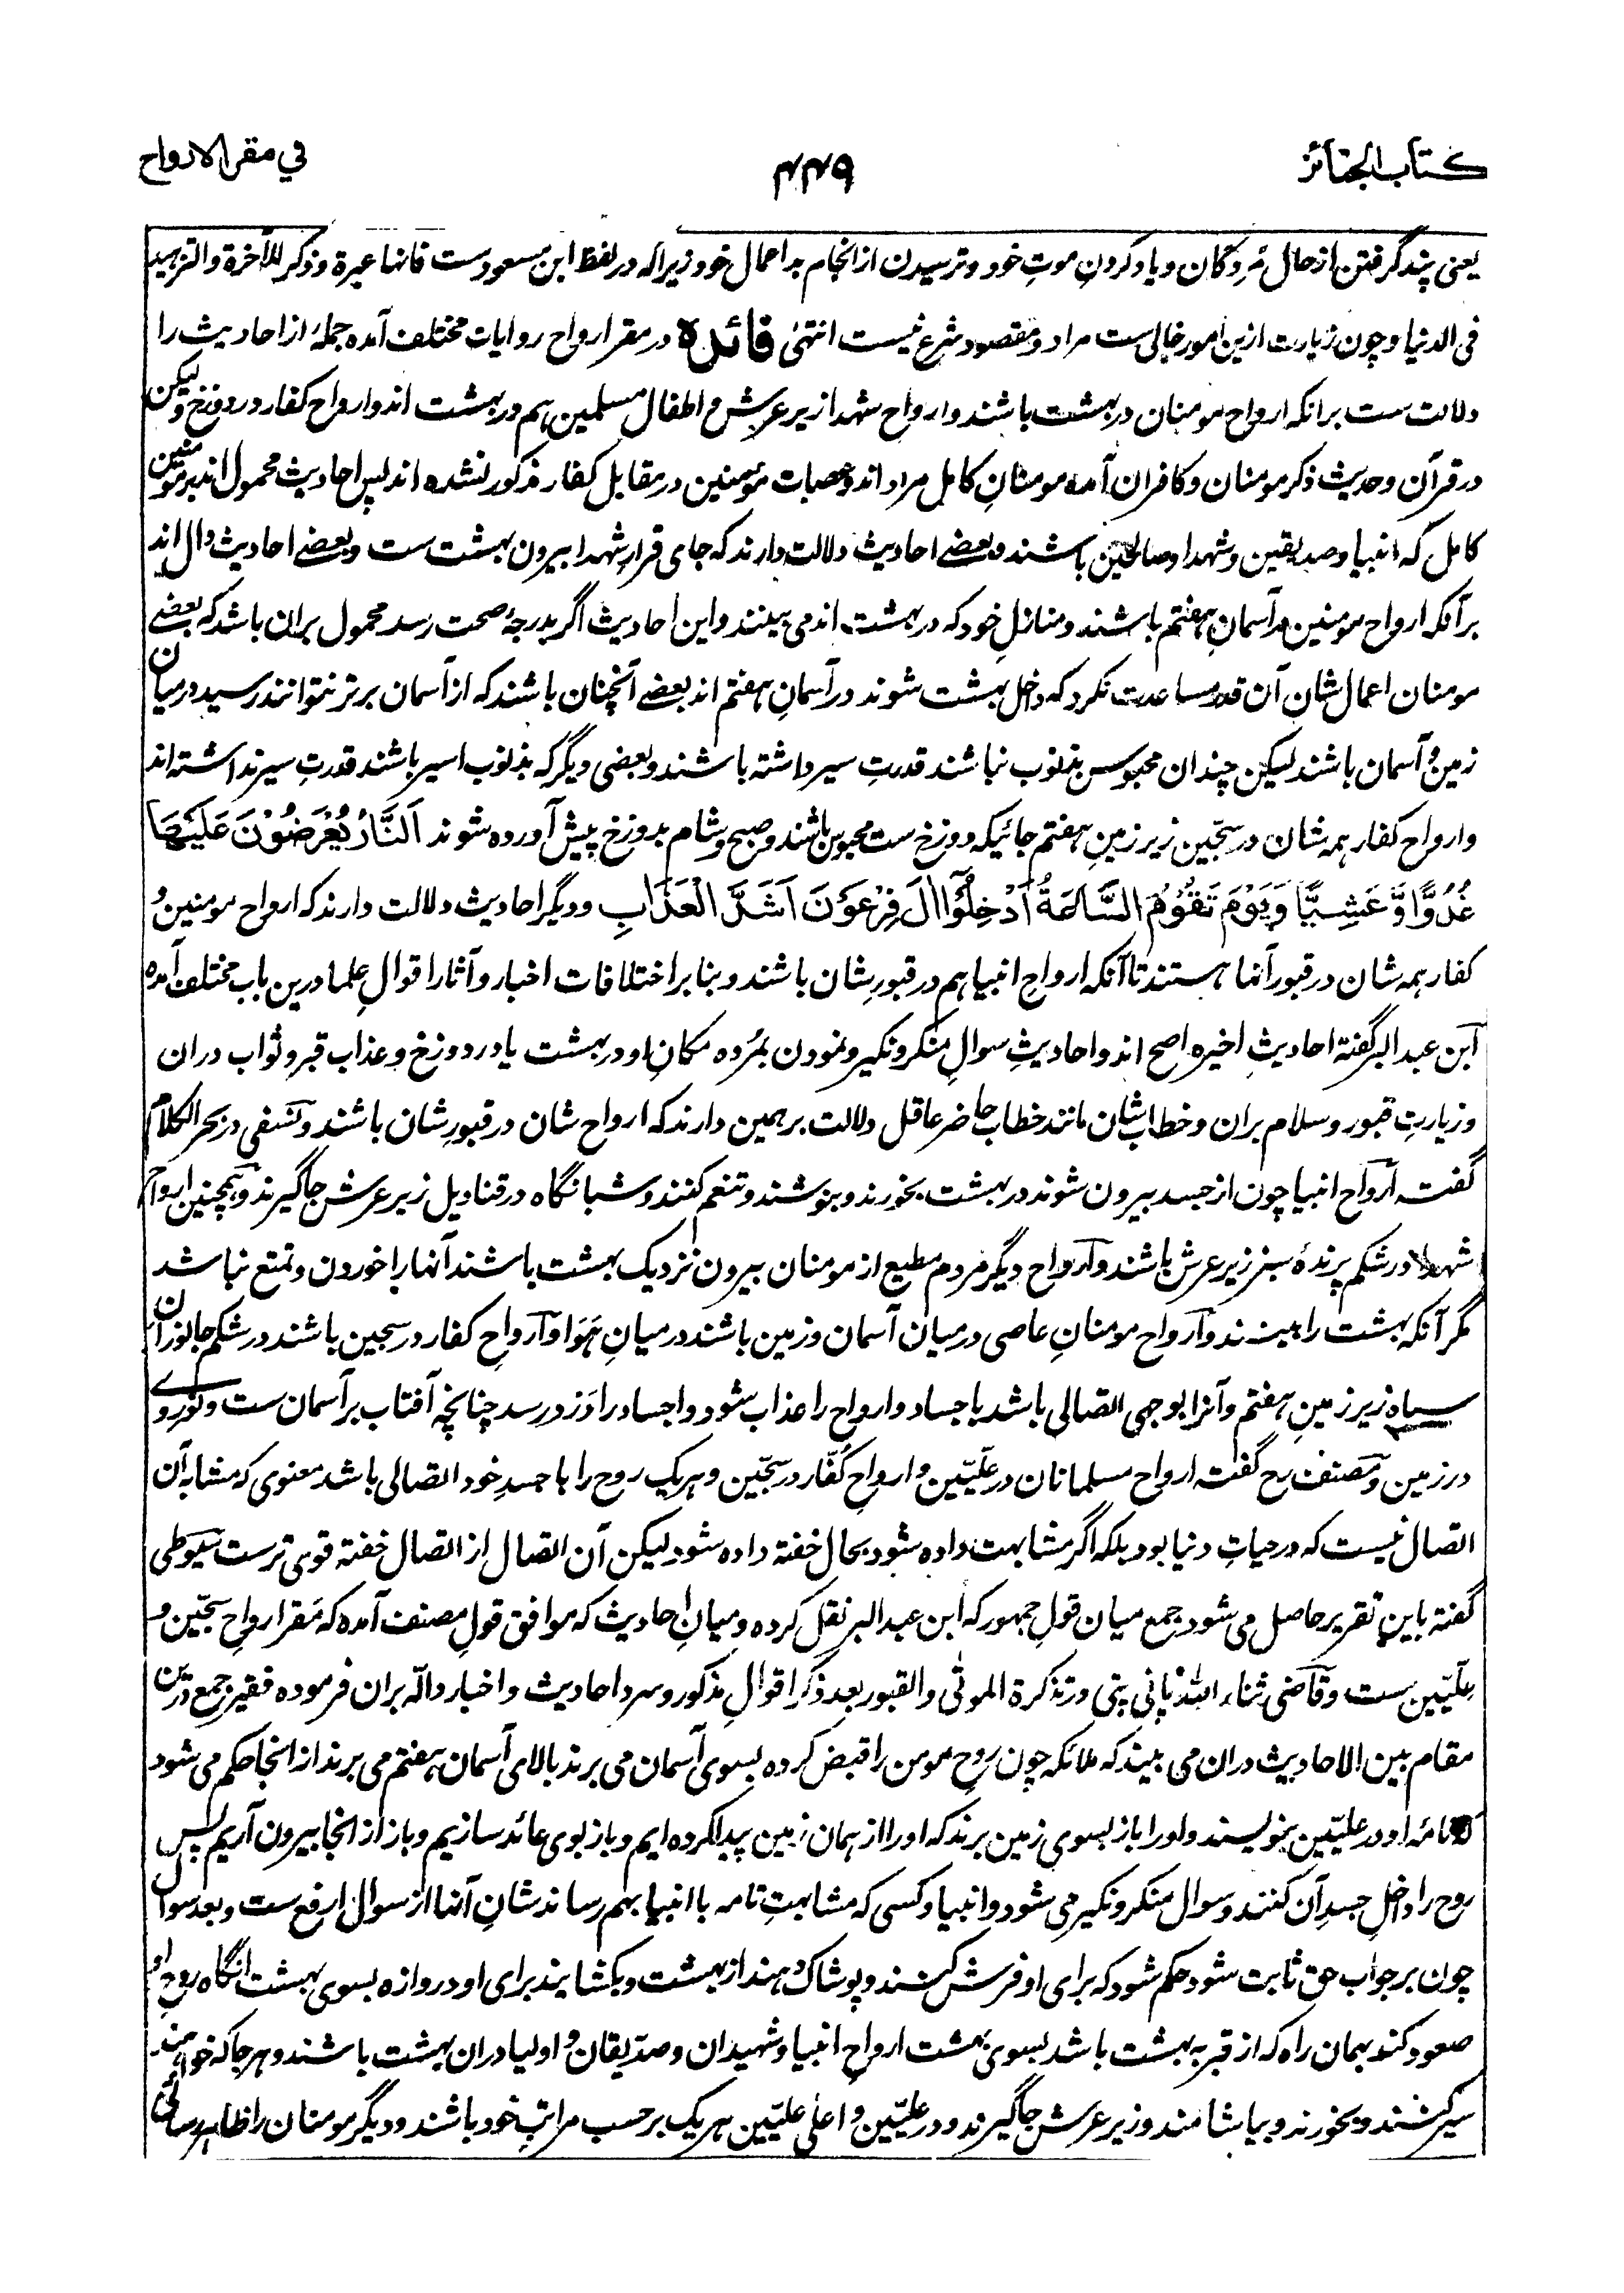 كتاب الجنائز
۴۴۹
في مقر الارواح
یعنی پند گرفتن از حال مُردگان و یاد کردنِ موتِ خود و ترسیدن از انجام بد اعمال خود زیرا که در لفظ ابن مسعودست فانها عبرة وذکر للآخرة والتزهید
فی الدنیا و چون زیارت ازین امور خالی ست مراد و مقصود شرع نیست انتهیٰ فائده در مقر ارواح روایات مختلف آمده جملهٔ از احادیث را
دلالت ست برانکه ارواح مومنان در بهشت باشند و ارواح شهدا زیر عرش و اطفال مسلمین هم در بهشت اند و ارواح کفار در دوزخ و لیکن
در قرآن و حدیث ذکر مومنان و کافران آمده مومنانِ کامل مراد اند و عصات مؤمنین در مقابل کفار مذکور نشده اند پس احادیث محمول اند بر مومنین
کامل که انبیا و صدیقین و شهدا و صالحین باشند و بعضے احادیث دلالت دارند که جای قرار شهدا بیرون بهشت ست و بعضے احادیث دال اند
برآنکه ارواح مومنین در آسمانِ هفتم باشند و منازلِ خود که در بهشت اند می بینند و این احادیث اگر بدرجهٔ صحت رسد محمول بران باشد که بعضے
مومنان اعمال شان آن قدر مساعدت نکرد که داخل بهشت شوند در آسمانِ هفتم اند بعضے آنچنان باشند که از آسمان برتر نتوانند رسید درمیان
زمین و آسمان باشند لیکن چندان محبوس بذنوب نباشند قدرتِ سیر داشته باشند و بعضی دیگر که بذنوب اسیر باشند قدرتِ سیر نداشته اند
و ارواح کفار همه شان در سجّین زیر زمینِ هفتم جائیکه دوزخ ست محبوس باشند و صبح و شام بدوزخ پیش آورده شوند اَلنَّارُ یُعْرَضُوْنَ عَلَیْهَا
غُدُوًّا وَّ عَشِیًّا وَ یَوْمَ تَقُوْمُ السَّاعَةُ اَدْخِلُوْٓا اٰلَ فِرْعَوْنَ اَشَدَّ الْعَذَابِ و دیگر احادیث دلالت دارند که ارواح مومنین و
کفار همه شان در قبور آنها هستند تا آنکه ارواحِ انبیا هم در قبورِ شان باشند و بنا بر اختلافات اخبار و آثار اقوالِ علما درین باب مختلف آمده
ابن عبد البر گفته احادیثِ اخیره اصح اند و احادیثِ سوالِ منکر و نکیر و نمودن بمُرده مکانِ او در بهشت یا در دوزخ و عذاب قبر و ثواب دران
و زیارتِ قبور و سلام بران و خطاب شان مانند خطابِ حاضر عاقل دلالت بر همین دارند که ارواح شان در قبورِ شان باشند و نسفی در بحر الکلام
گفته ارواح انبیا چون از جسد بیرون شوند در بهشت بخورند و بنوشند و تنعم کنند و شبانگاه در قنادیل زیر عرش جاگیرند و همچنین ارواح
شهدا در شکم پرندهٔ سبز زیر عرش باشند و ارواح دیگر مردم مطیع از مومنان بیرون نزدیک بهشت باشند آنها را خوردن و تمتع نباشد
مگر آنکه بهشت را بینند و ارواح مومنانِ عاصی درمیان آسمان و زمین باشند درمیانِ هَوَا و ارواحِ کفار در سجین باشند در شکم جانوران
سیاه زیر زمینِ هفتم و آنرا بوجهی اتصالی باشد باجساد و ارواح را عذاب شود و اجساد را دَرد رسد چنانچه آفتاب بر آسمان ست و نور وے
در زمین و مصنف رح گفته ارواح مسلمانان در علّیّین و ارواحِ کُفّار در سجّین و هریک روح را با جسدِ خود اتصالی باشد معنوی که مشابه آن
اتصال نیست که در حیاتِ دنیا بود بلکه اگر مشابهت داده شود بحال خفته داده شود لیکن آن اتصال از اتصال خفته قوی ترست سیوطی
گفته باین تقریر حاصل می شود جمع میان قولِ جمهور که ابن عبد البر نقل کرده و میانِ احادیث که موافق قولِ مصنف آمده که مَقر ارواح سجّین و
علّیّین ست و قاضی ثناء اللّٰه پانی پتی در تذکرة الموتٰی والقبور بعدِ ذکر اقوالِ مذکور و سرد احادیث و اخبار دالّه بران فرموده فقیر جمع درین
مقام بین الاحادیث دران می بیند که ملائکه چون روحِ مومن را قبض کرده بسوی آسمان می برند بالای آسمان هفتم می برند از انجا حکم می شود
که نامه او در علیّین بنویسند و او را باز بسوی زمین برند که او را از همان زمین پیدا کرده ایم و باز بوی عائد سازیم و باز از انجا بیرون آریم پس
روح را داخلِ جسدِ آن کنند و سوال منکر و نکیر می شود و انبیا و کسی که مشابهتِ تامه با انبیا بهم رساند شانِ آنها از سوال ارفع ست و بعد سوال
چون بر جواب حق ثابت شود حکم شود که برای او فرش کنند و پوشاک دهند از بهشت و بکشایند برای او دروازه بسوی بهشت انگاه روحِ او
صعود کند بهمان راه که از قبر به بهشت باشد بسوی بهشت ارواحِ انبیا و شهیدان و صدّیقان و اولیا دران بهشت باشند و هر جا که خواهند
سیر کنند و بخورند و بیاشامند و زیر عرش جاگیرند و در علیّین و اعلیٰ علیّین هریک بر حسب مراتبِ خود باشند و دیگر مومنان را ظاهر رسائی